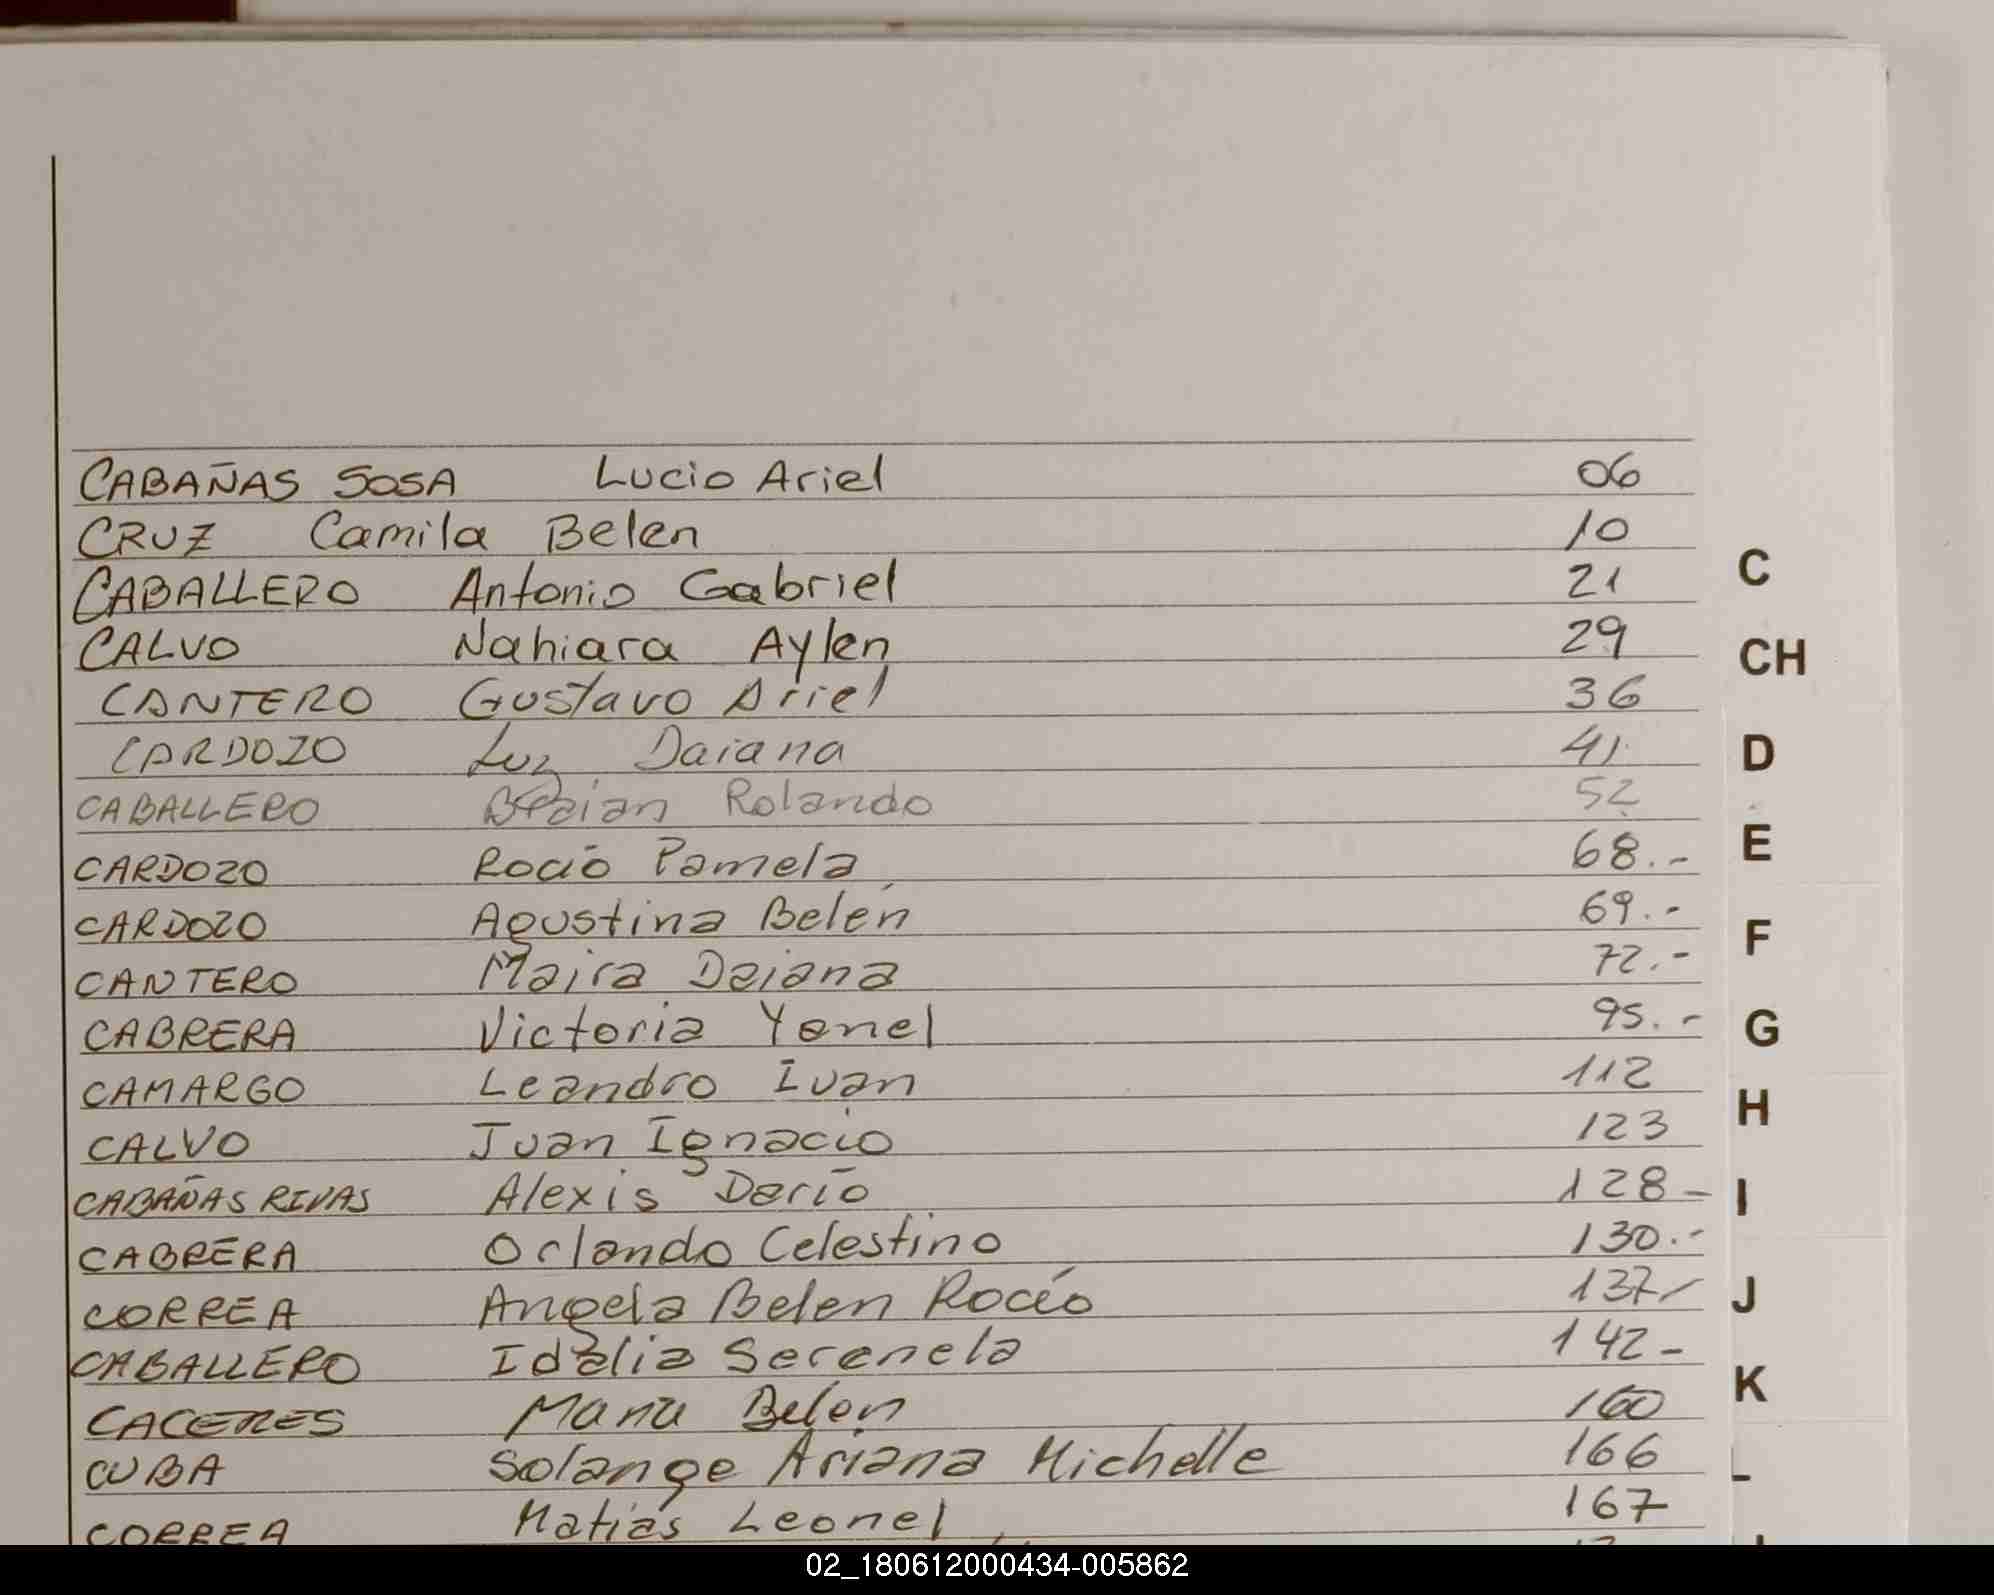 CABAÑAS SOSA Lucio Ariel 06
CRUZ Camila Belen 10
CABALLERO Antonio Gabriel 21
CALVO Nahiara Aylen 29
CANTERO Gustavo Ariel 36
CARDOZO Luz Daiana 41
CABALLERO Rolando 52
CARDOZO Rocío Pamela 68.-
CARDOZO Agustina Belén 69.-
CANTERO Maira Daiana 72.-
CABRERA Victoria Yanel 95.-
CAMARGO Leandro Ivan 112
CALVO Juan Ignacio 123
CABAÑAS RIVAS Alexis Darío 128-
CABRERA Orlando Celestino 130.-
CORREA Angela Belen Rocío 137-
CABALLERO Idalia Serenela 142-
CACERES Belen 160
CUBA Solange Ariana Michelle 166
CORREA Matias Leonel 167
C
CH
D
E
F
G
H
I
J
K
02_180612000434-005862